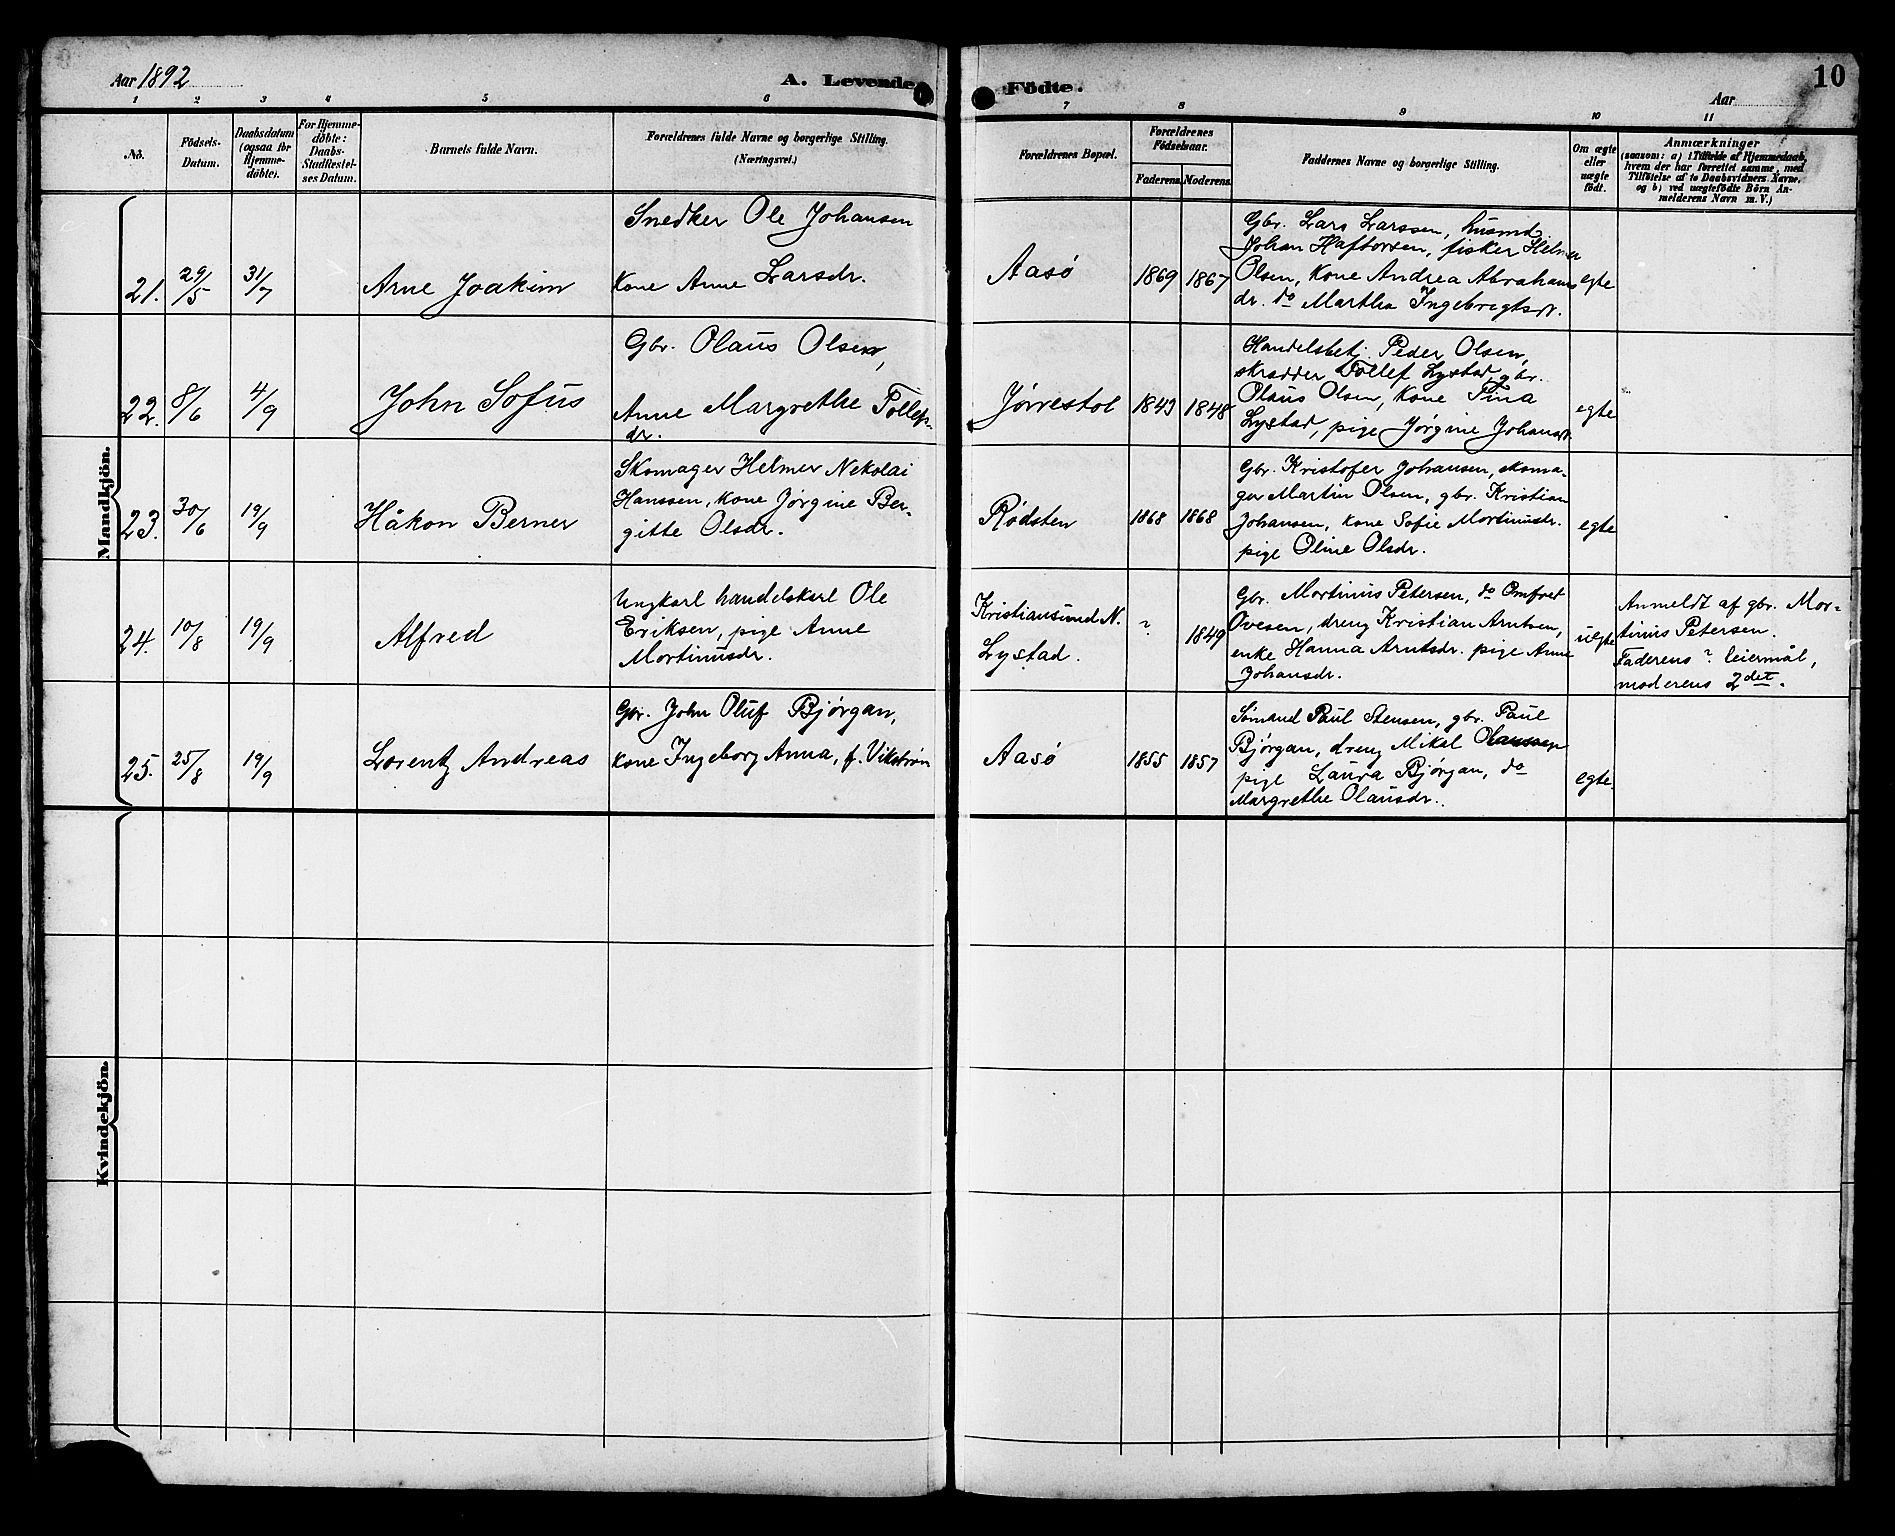 Aar 1892
A. Levende Födte.
Aar
10
1 2 3 4 5 6 7 8 9 10 11
No.
Födsels-
Datum.
Daabsdatum
(ogsaa for
Hjemme-
döbte).
For Hjemme-
döbte:
Daabs-
Stadfæstel-
ses Datum.
Barnets fulde Navn.
Forældrenes fulde Navne og borgerlige Stilling.
(Næringsvei.)
Forældrenes Bopæl.
Forældrenes
Födselsaar.
Faderens. Moderens.
Faddernes Navne og borgerlige Stilling.
Om ægte
eller
uægte
födt.
Anmærkninger
(saasom: a) i Tilfælde af Hjemmedaab,
hvem der har forrettet samme, med
Tilföielse af to Daabsvidners Navne,
og b) ved uægtefödte Börn An-
melderens Navn m. V.)
Mandkjön.
21.
29/5
31/7
Arne Joakim
Snedker Ole Johansen
kone Anne Larsdr.
Aasø
1869
1867
Gbr. Lars Larssen, husmd
Johan Haftorsen, fisker Helmer
Olsen, kone Andrea Abrahams
dr. do Martha Ingebregtsdr.
egte
22.
8/6
4/9
John Sofus
Gbr. Olaus Olsen,
Anne Margrethe Tollefs-
dr.
Jørrestol
1843
1848
Handelsbetj. Peder Olsen,
skrædder Tollef Lystad, gbr.
Olaus Olsen, kone Tina
Lystad, pige Jørgine Johansdr.
egte
23.
30/6
19/9
Håkon Berner
Skomager Helmer Nekolai
Hanssen, kone Jørgine Ber-
gitte Olsdr.
Rødsten
1868
1868
Gbr. Kristofer Johansen, skoma-
ger Martin Olsen, gbr. Kristian
Johansen, kone Sofie Mortinusdr.
pige Oline Olsdr.
egte
24.
10/8
19/9
Alfred
Ungkarl handelskarl Ole
Eriksen, pige Anne
Mortinusdr.
Kristiansund N.
Lystad.
?
1849
Gbr. Mortinus Petersen, do Omfret
Ovesen, dreng Kristian Arntsen,
enke Hanna Arntsdr. pige Anne
Johansdr.
uegte
Anmeldt af gbr. Mor-
tinus Petersen.
Faderens ? leiermål,
moderens 2det.
25.
25/8
19/9
Lorentz Andreas
Gbr. John Oluf Bjørgan,
kone Ingeborg Anna, f. Vikstrøm
Aasø
1855
1857
Sømand Paul Stensen, gbr. Paul
Bjørgan, dreng Mikal Olaussen
pige Laura Bjørgan, do
Margrethe Olausdr.
egte.
Kvindekjön.